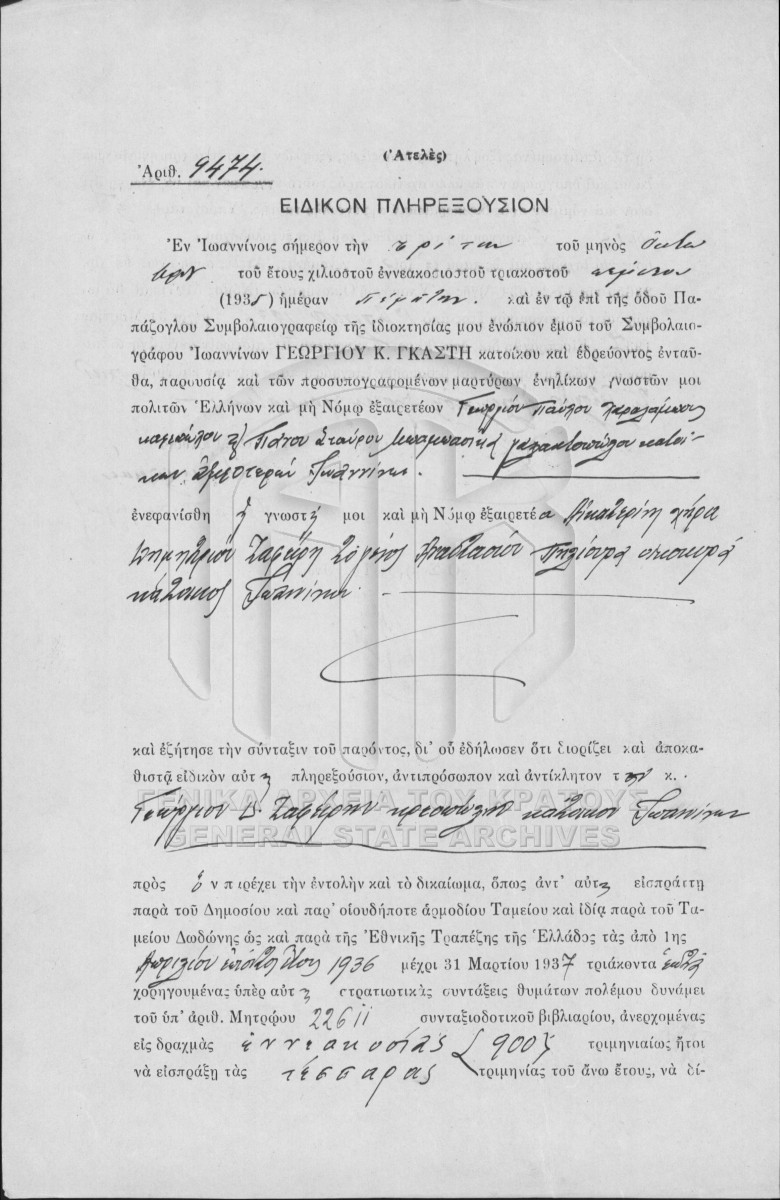 (Ἀτελὲς)
Ἀριθ. 9474.
ΕΙΔΙΚΟΝ ΠΛΗΡΕΞΟΥΣΙΟΝ
Ἐν Ἰωαννίνοις σήμερον τὴν τρίτην τοῦ μηνὸς Ὀκτω
βρίου τοῦ ἔτους χιλιοστοῦ ἐννεακοσιοστοῦ τριακοστοῦ πέμπτου
(1935) ἡμέραν Πέμπτην. καὶ ἐν τῷ ἐπὶ τῆς ὁδοῦ Πα-
πάζογλου Συμβολαιογραφείῳ τῆς ἰδιοκτησίας μου ἐνώπιον ἐμοῦ τοῦ Συμβολαιο-
γράφου Ἰωαννίνων ΓΕΩΡΓΙΟΥ Κ. ΓΚΑΣΤΗ κατοίκου καὶ ἑδρεύοντος ἐνταῦ-
θα, παρουσίᾳ καὶ τῶν προσυπογραφομένων μαρτύρων ἐνηλίκων γνωστῶν μοι
πολιτῶν Ἑλλήνων καὶ μὴ Νόμῳ ἐξαιρετέων Γεωργίου Παύλου
Σταύρου γαλακτοπώλου κατοί-
κων ἀμφοτέρων Ἰωαννίνων.
ἐνεφανίσθη ἡ γνωστή μοι καὶ μὴ Νόμῳ ἐξαιρετέα Αἰκατερίνη χήρα
Δημητρίου Ζαφείρη τὸ γένος Ἀναστασίου οἰκοκυρά
κάτοικος Ἰωαννίνων.
καὶ ἐζήτησε τὴν σύνταξιν τοῦ παρόντος, δι' οὗ ἐδήλωσεν ὅτι διορίζει καὶ ἀποκα-
θιστᾷ εἰδικὸν αὐτῆς πληρεξούσιον, ἀντιπρόσωπον καὶ ἀντίκλητον τὸν κ.
ΓΕΝΙΚΑ ΑΡΧΕΙΑ ΤΟΥ ΚΡΑΤΟΥΣ
Γεώργιον Δ. Ζαφείρην κρεοπώλην κάτοικον Ἰωαννίνων
GENERAL STATE ARCHIVES
πρὸς ὃν παρέχει τὴν ἐντολὴν καὶ τὸ δικαίωμα, ὅπως ἀντ' αὐτῆς εἰσπράττῃ
παρὰ τοῦ Δημοσίου καὶ παρ' οἱουδήποτε ἁρμοδίου Ταμείου καὶ ἰδίᾳ παρὰ τοῦ Τα-
μείου Δωδώνης ὡς καὶ παρὰ τῆς Ἐθνικῆς Τραπέζης τῆς Ἑλλάδος τὰς ἀπὸ 1ης
Ἀπριλίου 1936 μέχρι 31 Μαρτίου 1937 τριάκοντα ἑπτὰ
χορηγουμένας ὑπὲρ αὐτῆς στρατιωτικὰς συντάξεις θυμάτων πολέμου δυνάμει
τοῦ ὑπ' ἀριθ. Μητρῴου 22611 συνταξιοδοτικοῦ βιβλιαρίου, ἀνερχομένας
εἰς δραχμὰς ἐννεακοσίας (900) τριμηνιαίως ἤτοι
νὰ εἰσπράξῃ τὰς τέσσαρας τριμηνίας τοῦ ἄνω ἔτους, νὰ δί-